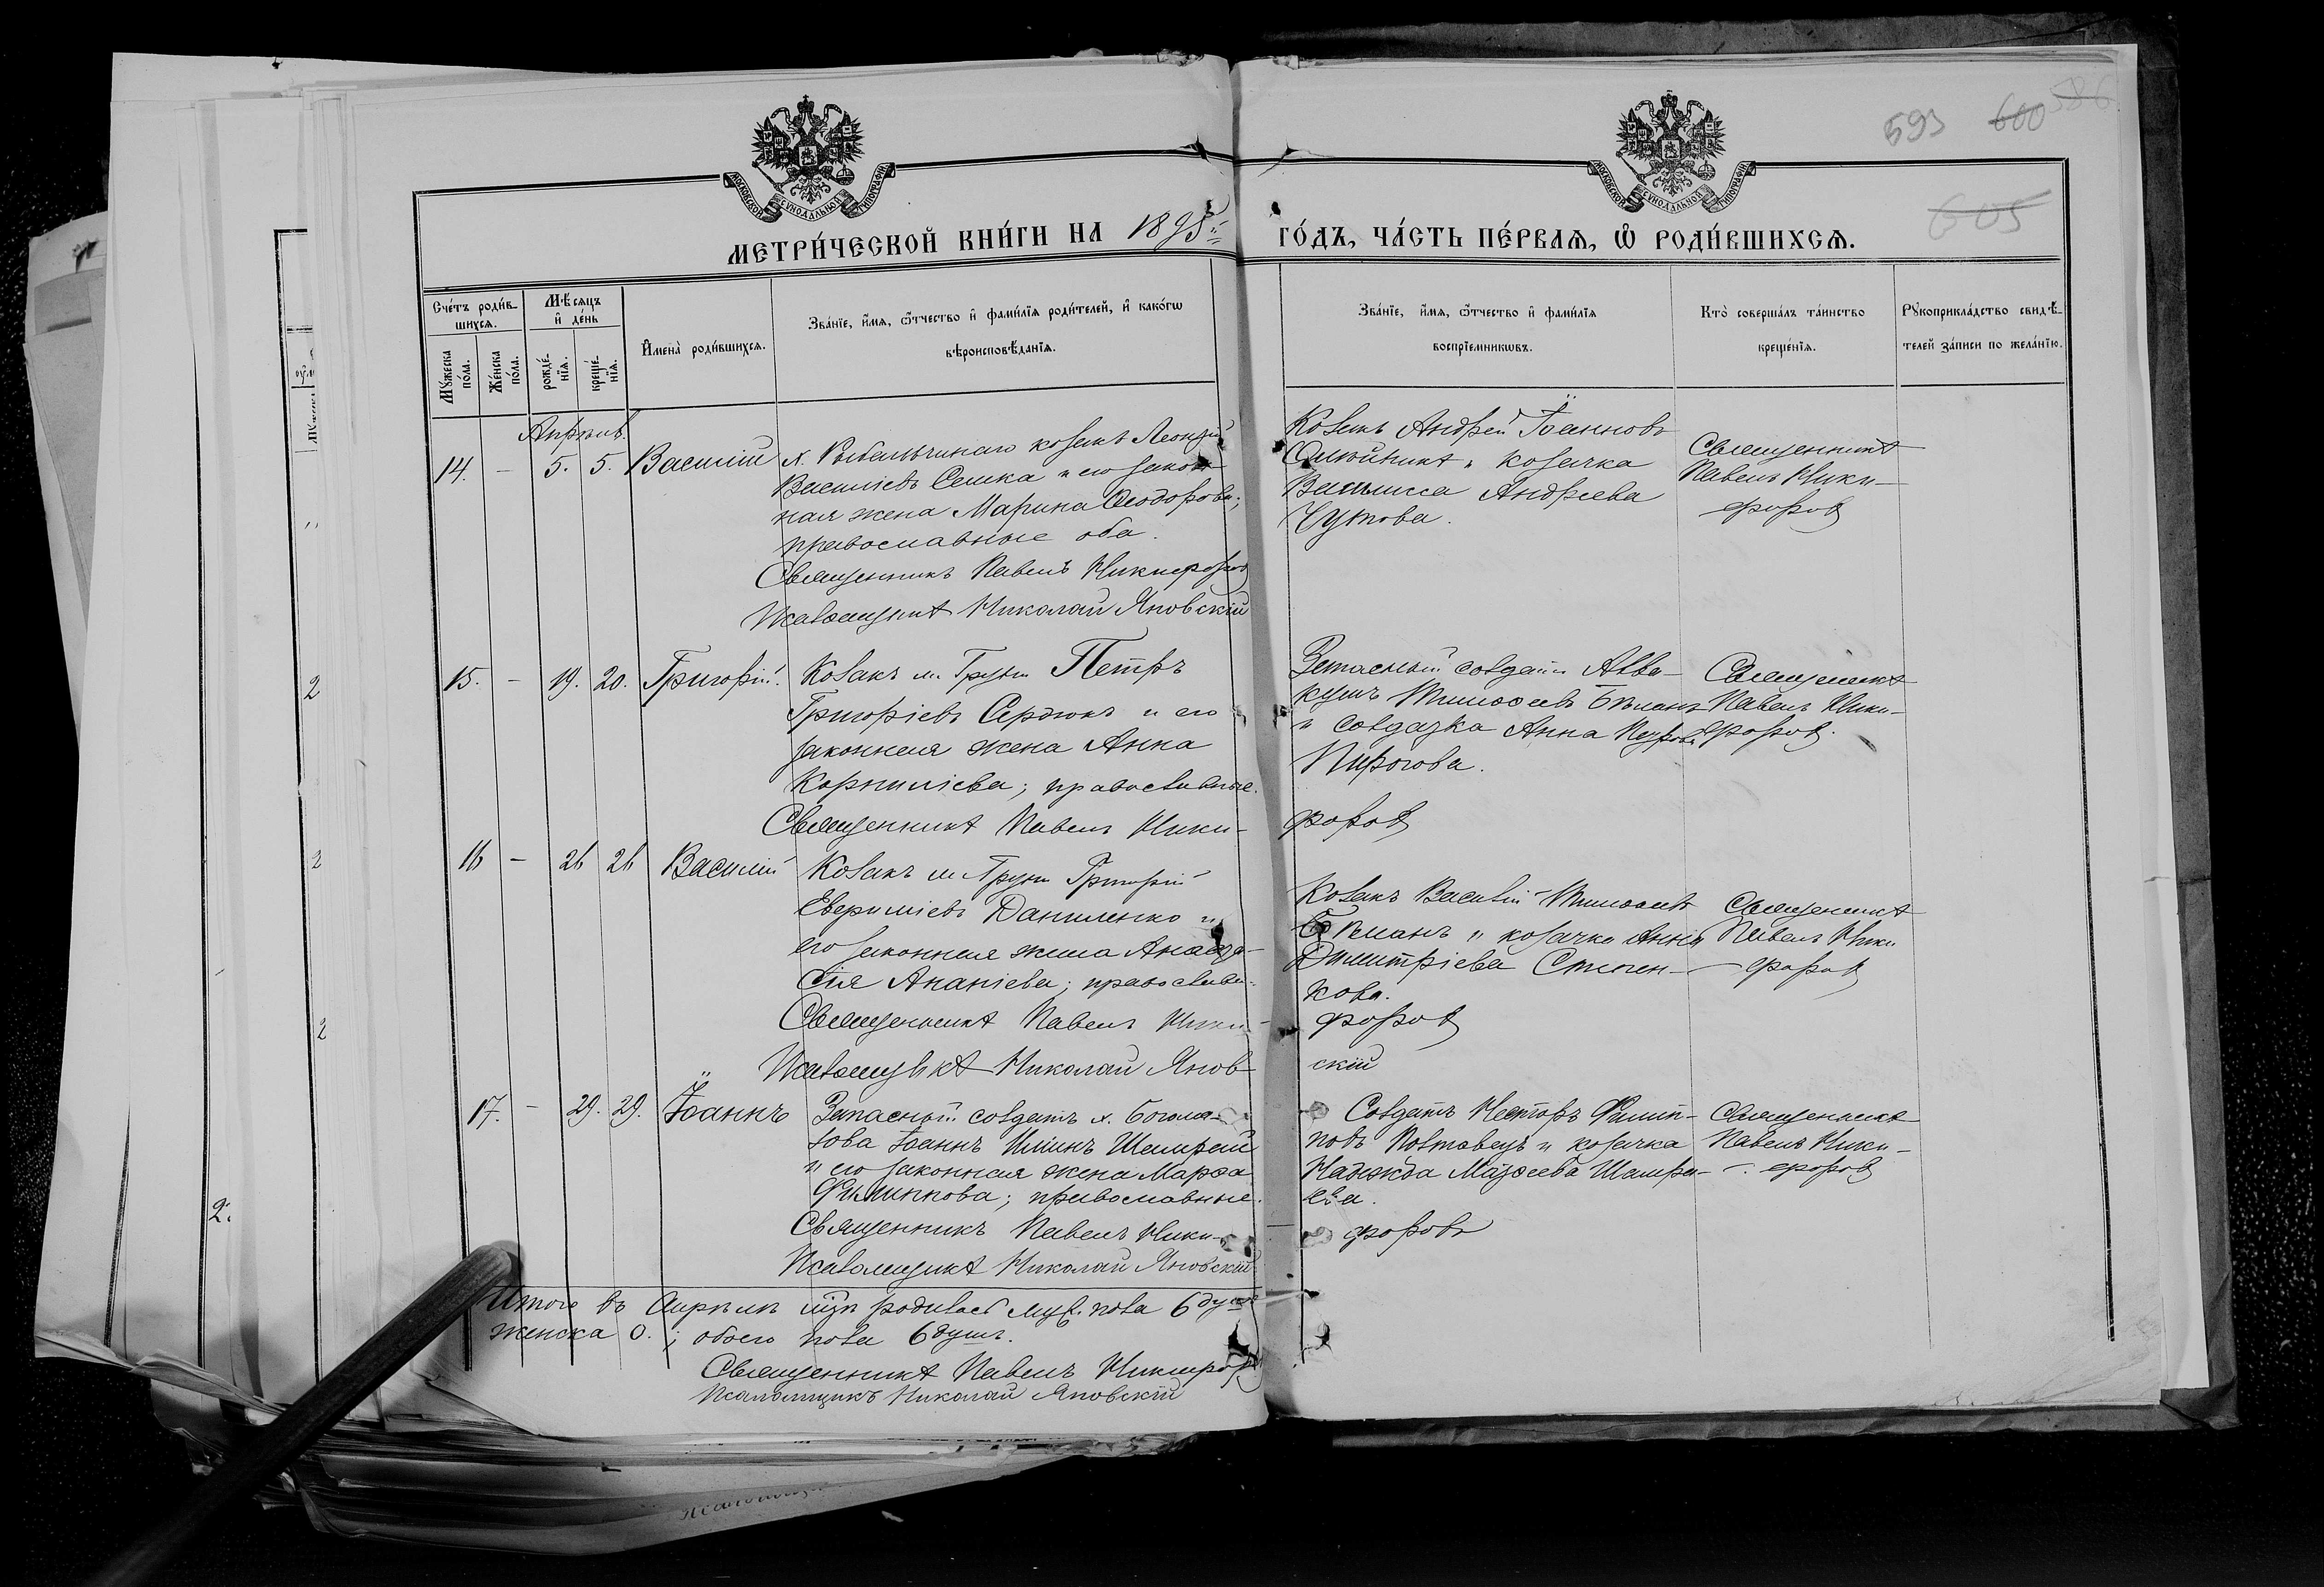 593 600 586
605
МОСКОВСКОЙ СѴНОДАЛЬНОЙ ТИПОГРАФІИ
МОСКОВСКОЙ СѴНОДАЛЬНОЙ ТИПОГРАФІИ
МЕТРИ́ЧЕСКОЙ КНИ́ГИ НА 1895й ГО́ДЪ, ЧА́СТЬ ПЕ́РВАѦ, Ѡ҆ РОДИ́ВШИХСѦ.
Сче́тъ роди́в-
шихсѧ.
Мꙋ́жеска по́ла.
Же́нска по́ла.
Мѣ́сяцъ и҆ де́нь
рожде́-нїѧ.
креще́-нїѧ.
И҆мена̀ роди́вшихсѧ.
Зва́нїе, и҆́мѧ, ѻ҆́тчество и҆ фами́лїѧ роди́телей, и҆ како́гѡ
вѣроисповѣ́данїѧ.
Зва́нїе, и҆́мѧ, ѻ҆́тчество и҆ фами́лїѧ
воспрїе́мникѡвъ.
Кто̀ соверша́лъ та́инство
креще́нїѧ.
Рꙋкоприкла́дство свидѣ́-
телей за́писи по жела́нїю.
Апрѣль.
14. - 5. 5. Василій х. Рыбальчинаго козакъ Леонтій
Василіевъ Сешка и его закон-
ная жена Марина Ѳеодорова;
православные оба.
Священникъ Павелъ Никифоровъ
Псаломщикъ Николай Яновскій
Козакъ Андрей Іоанновъ
Олюйникъ и козачка
Василиса Андреева
Чутова.
Священникъ
Павелъ Ники-
форовъ
15. - 19. 20. Григорій. Козакъ м. Груни Петръ
Григоріевъ Сердюкъ и его
законная жена Анна
Корниліева; православные.
Священникъ Павелъ Ники- форовъ
Запасный солдатъ Авва-
кумъ Тимоѳеевъ Бѣланъ
и солдатка Анна Петрова
Пирогова.
Священникъ
Павелъ Ники-
форовъ.
16 - 26 26 Василій Козакъ м. Груни Григорій
Евфиміевъ Даниленко и
его законная жена Анаста-
сія Ананіева; православн.
Священникъ Павелъ Ники- форовъ
Псаломщикъ Николай Янов- скій
Козакъ Василій Тимоѳеевъ
Бѣланъ и козачка Анна
Димитріева Степен-
кова.
Священникъ
Павелъ Ники
форовъ
17. - 29. 29. Іоаннъ Запасный солдатъ х. Богома-
зова Іоаннъ Иліинъ Шемрай
и его законная жена Марѳа
Филиппова; православные.
Священникъ Павелъ Ники- форовъ
Псаломщикъ Николай Яновскій
Солдатъ Несторъ Филип-
повъ Полтавецъ и козачка
Надежда Маѳѳеева Шамра-
ева.
Священникъ
Павелъ Ники-
форовъ
Итого въ Апрѣлѣ мцѣ родилось муж. пола 6 душъ
женска 0.; обоего пола 6 душъ.
Священникъ Павелъ Никифоровъ
Псаломщикъ Николай Яновскій
2
2
2
2.